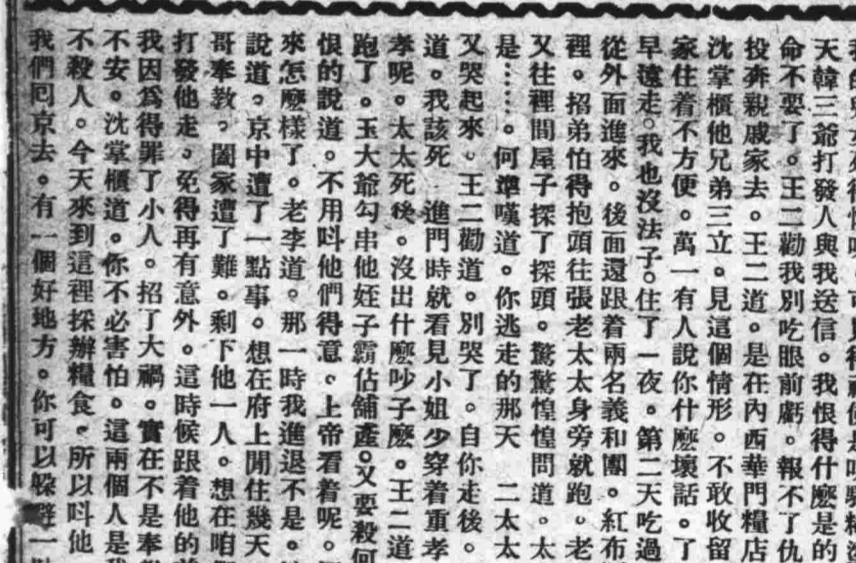 天韓三爺打發人與我送信。我恨得什麽是的
命不要了。王二勸我別吃眼前虧。報不了仇
投奔親戚家去。王二道。是在內西華門糧店
沈掌櫃他兄弟三立。見這個情形。不敢收留
家住着不方便。萬一有人說你什麽壞話。了
早遠走。我也沒法子。住了一夜。第二天吃過
從外面進來。後面還跟着兩名義和團。紅布
裡。招弟怕得抱頭往張老太太身旁就跑。老
又往裡間屋子探了探頭。驚驚惶惶問道。太
是……。何準嘆道。你逃走的那天 二太太
又哭起來。王二勸道。別哭了。自你走後。
道。我該死 進門時就看見小姐少穿着重孝
孝呢。太太死後。沒出什麽吵子麽。王二道
跑了。玉大爺勾串他姪子霸佔舖產。又要殺何
恨的說道。不用呌他們得意。上帝看着呢。
來怎麽樣了。老李道。那一時我進退不是。
說道。京中遭了一點事。想在府上閒住幾天
哥奉教。闔家遭了難。剩下他一人。想在咱
打發他走。免得再有意外。這時候跟着他的
我因爲得罪了小人。招了大禍。實在不是奉
不安。沈掌櫃道。你不必害怕。這兩個人是
不殺人。今天來到這裡採辦糧食。所以呌他
我們囘京去。有一個好地方。你可以躲避一